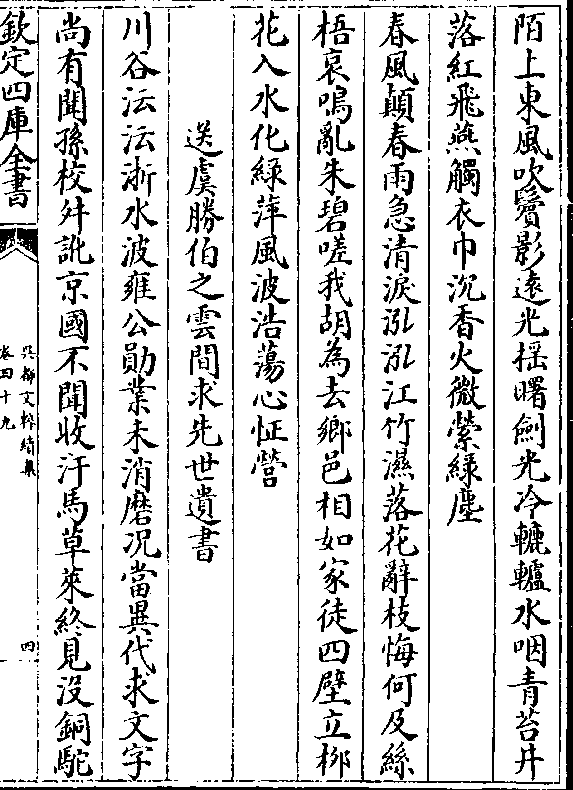 陌上東風吹鬢影遠光揺曙劍光冷轆轤水咽青苔井
落紅飛燕觸衣巾沉香火微縈緑塵
春風顛春雨急清淚泓泓江竹濕落花辭枝悔何及絲
梧哀鳴亂朱碧嗟我胡為去鄉邑相如家徒四壁立栁
花入水化緑萍風波浩蕩心怔營
送虞勝伯之雲間求先世遺書
川谷沄沄浙水波雍公勛業未消磨况當異代求文字
尚有聞孫校舛訛京國不聞收汗馬草萊終見沒銅駝
欽定四庫全書
吳都文粹續集
卷四十九
四